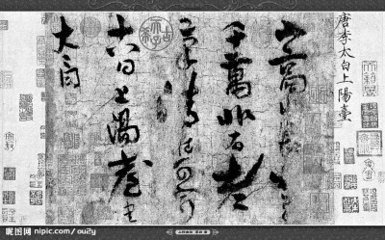 唐李太白上陽臺
山高水長
千萬非有老
筆清壯
十八日上陽臺書
太白
昵图网 nipic.com/ou2y